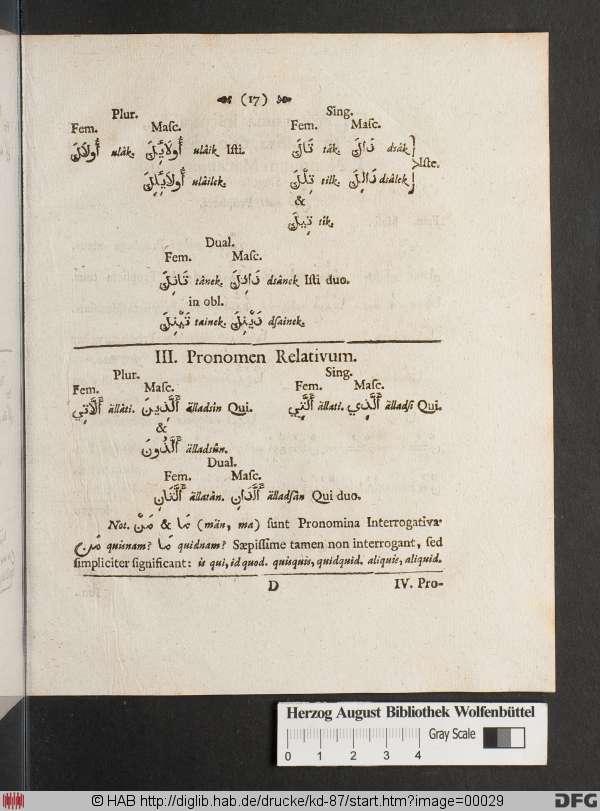 (17)
Plur. Sing.
Fem. Masc. Fem. Masc.
أُولَاكَ ulâk. أُولَائِكَ ulâik Isti. تَاكَ tâk. ذَاكَ dsâk
أُولَائِلِكَ ulâilek. تِلْكَ tilk. ذَالِكَ dsâlek } Iste.
&
تِيكَ tik.
Dual.
Fem. Masc.
تَانِكَ tânek. ذَانِكَ dsânek Isti duo.
in obl.
تَيْنِكَ tainek. ذَيْنِكَ dsainek.
III. Pronomen Relativum.
Plur. Sing.
Fem. Masc. Fem. Masc.
أَلَّاتِي ällâti. أَلَّذِينَ älladsin Qui. أَلَّتِي ällati. أَلَّذِي älladsi Qui.
&
أَلَّذُونَ älladsûn.
Dual.
Fem. Masc.
أَلَّتَانِ ällatàn. أَلَّذَانِ älladsàn Qui duo.
Not. مَنْ & مَا (män, ma) sunt Pronomina Interrogativa
مَن quisnam? مَا quidnam? Sæpissime tamen non interrogant, sed
simpliciter significant: is qui, id quod. quisquis, quidquid. aliquis, aliquid.
D IV. Pro-
Herzog August Bibliothek Wolfenbüttel
0 1 2 3 4 Gray Scale
© HAB http://diglib.hab.de/drucke/kd-87/start.htm?image=00029
DFG